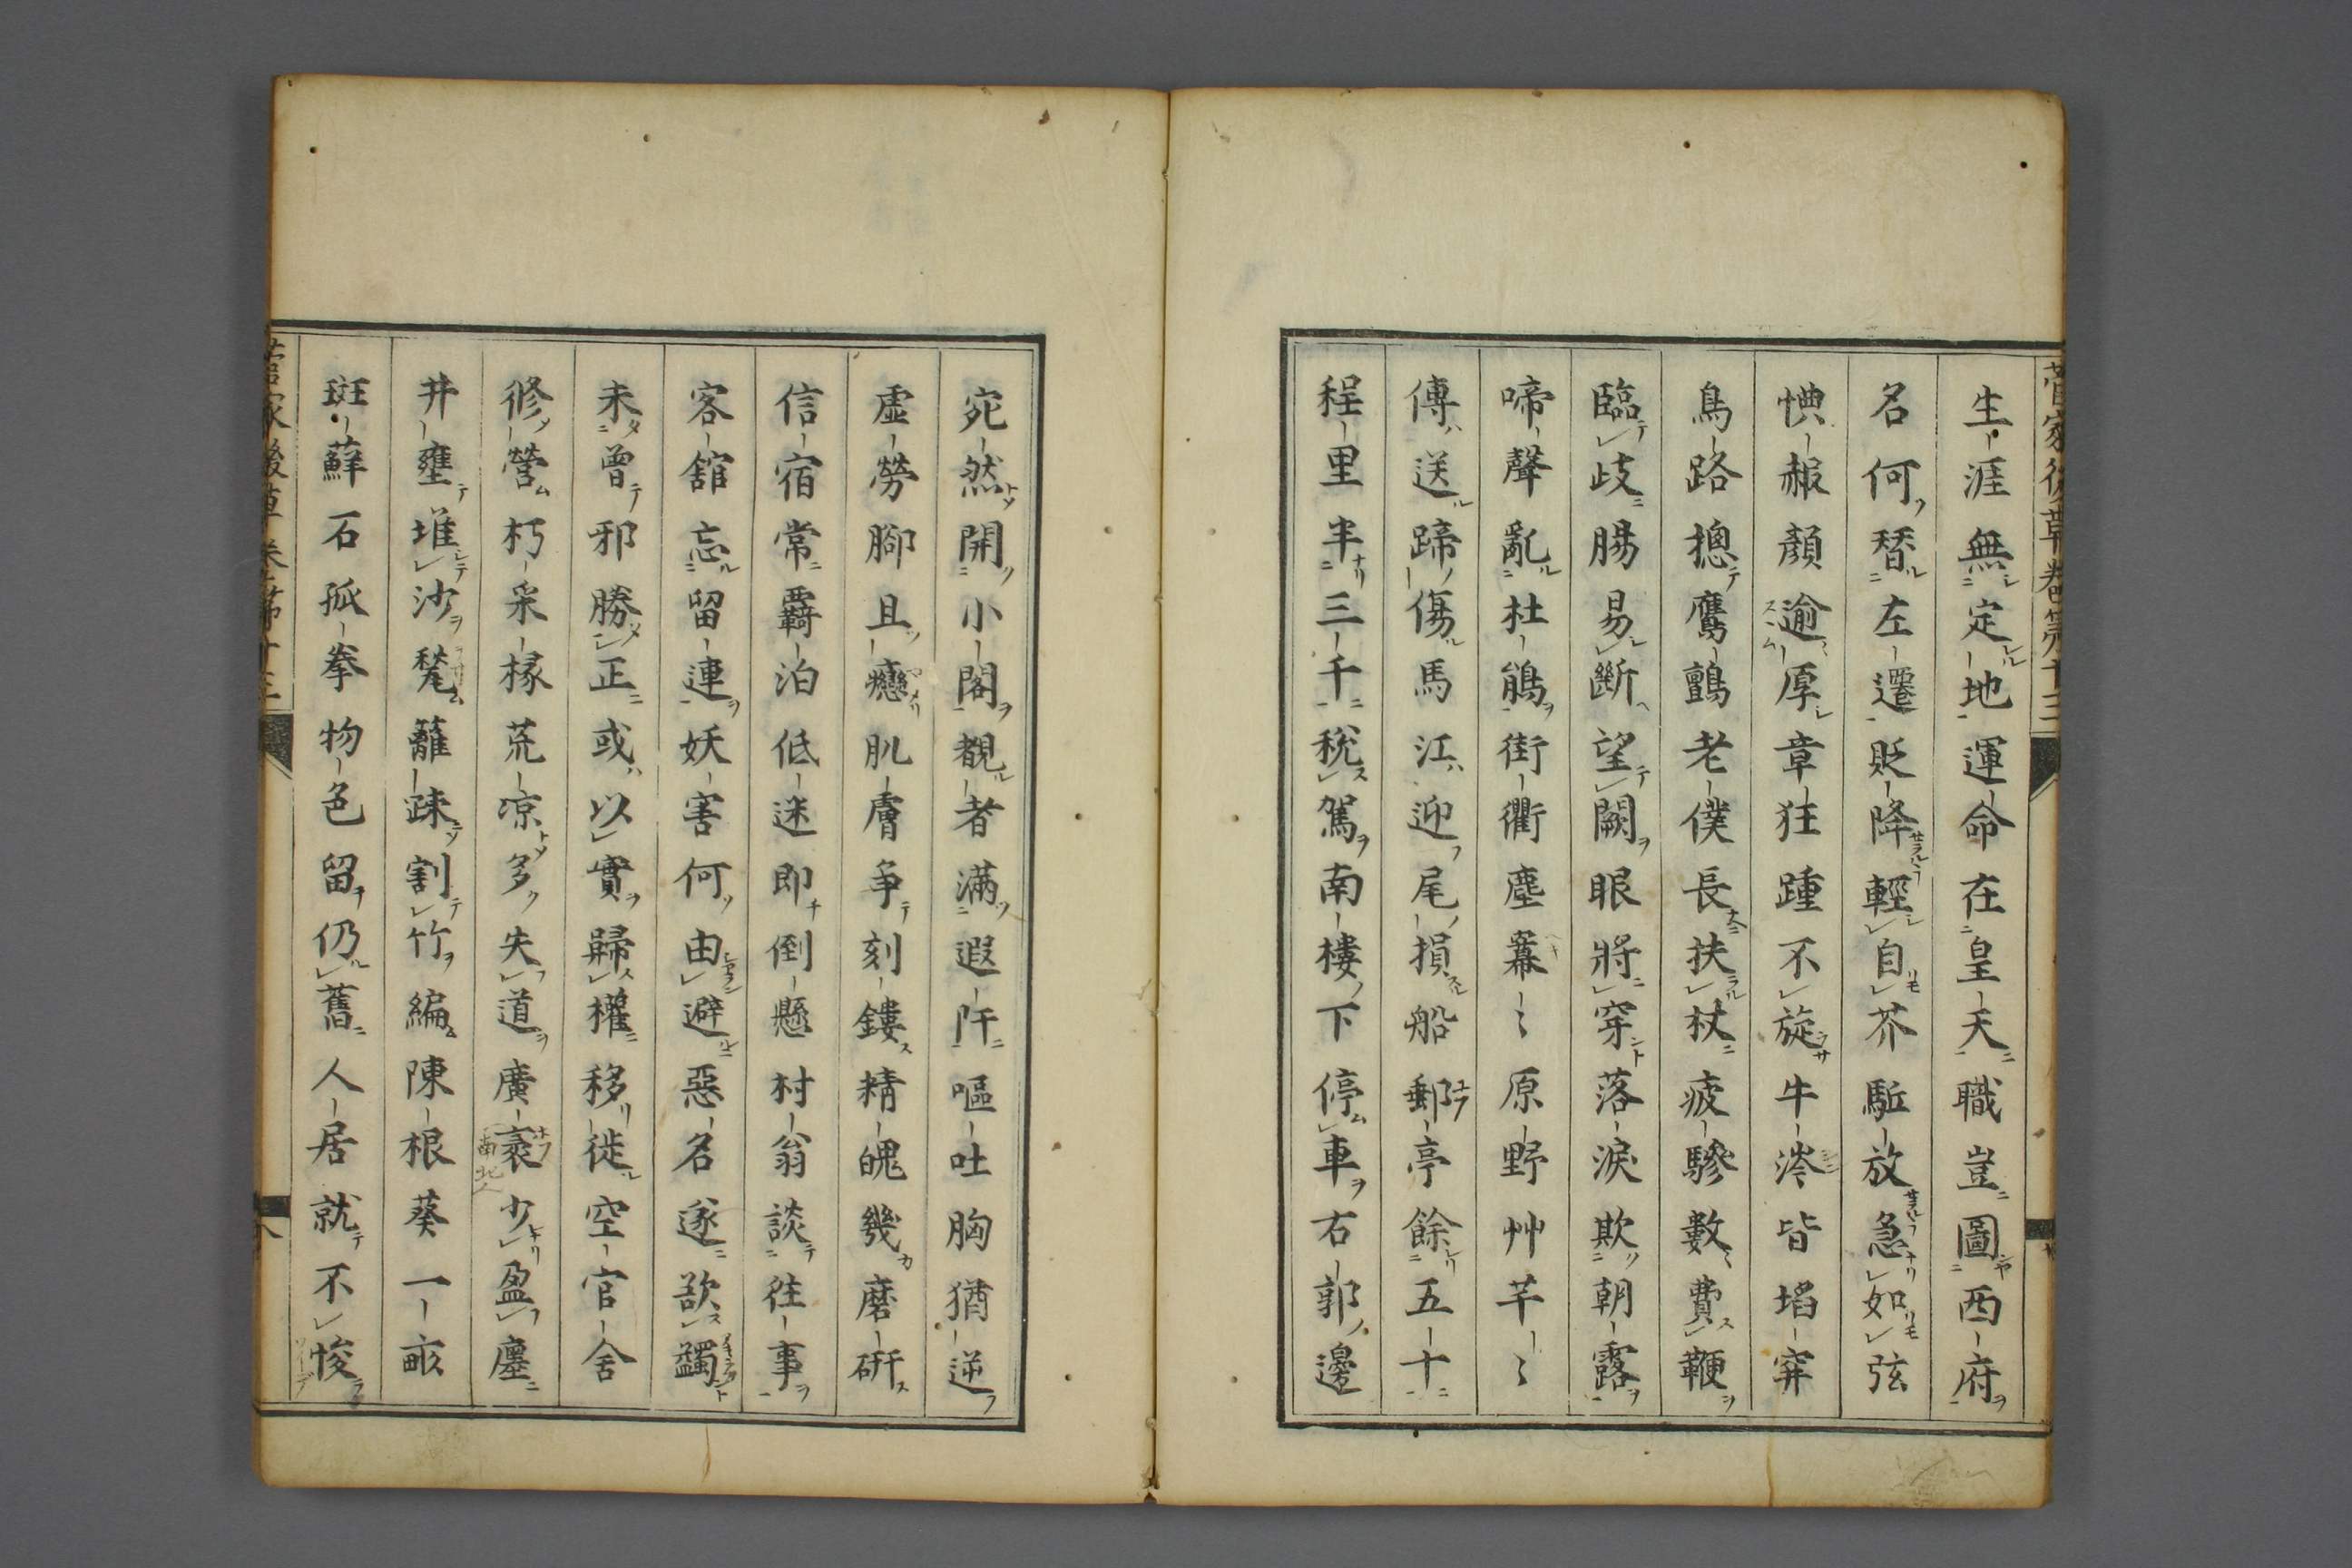 生涯無定地運命在皇天職豈圖西府
名何替左遷貶降輕自芥駈放急如弦
㥏赧顔逾厚章狂踵不旋牛涔皆埳穽
鳥路摠鷹鸇老僕長扶杖疲驂數費鞭
臨歧腸易斷望闕眼將穿落淚欺朝露
啼聲亂杜鵑街衢塵冪〻原野艸芊〻
傳送蹄傷馬江迎尾損船郵亭餘五十
程里半三千稅駕南樓下停車右郭邊
宛然開小閣覩者滿遐阡嘔吐胸猶逆
虛勞腳且癴肌膚爭刻鏤精魄幾磨硏
信宿常羇泊低迷即倒懸村翁談往事
客舘忘留連妖害何由避惡名遂欲蠲
未曾邪勝正或以實歸權移徙空官舍
修營朽采椽荒凉多失道廣袤少盈廛
井壅堆沙甃籬疎割竹編陳根葵一畝
斑蘚石孤拳物色留仍舊人居就不悛